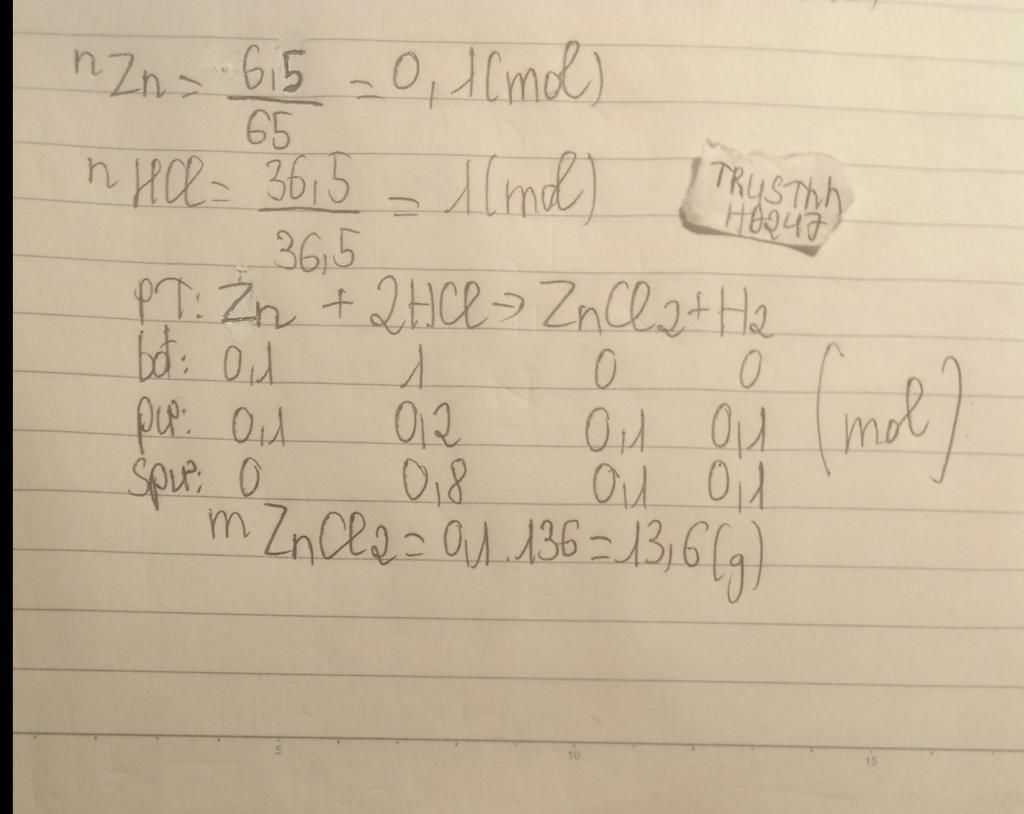 nZn = 6,5/65 = 0,1(mol)
nHCl = 36,5/36,5 = 1(mol)
TRYSThh
H0247
PT: Zn + 2HCl → ZnCl2 + H2
bđ: 0,1 1 0 0
pư: 0,1 0,2 0,1 0,1 (mol)
Spư: 0 0,8 0,1 0,1
mZnCl2 = 0,1.136 = 13,6(g)
5 10 15